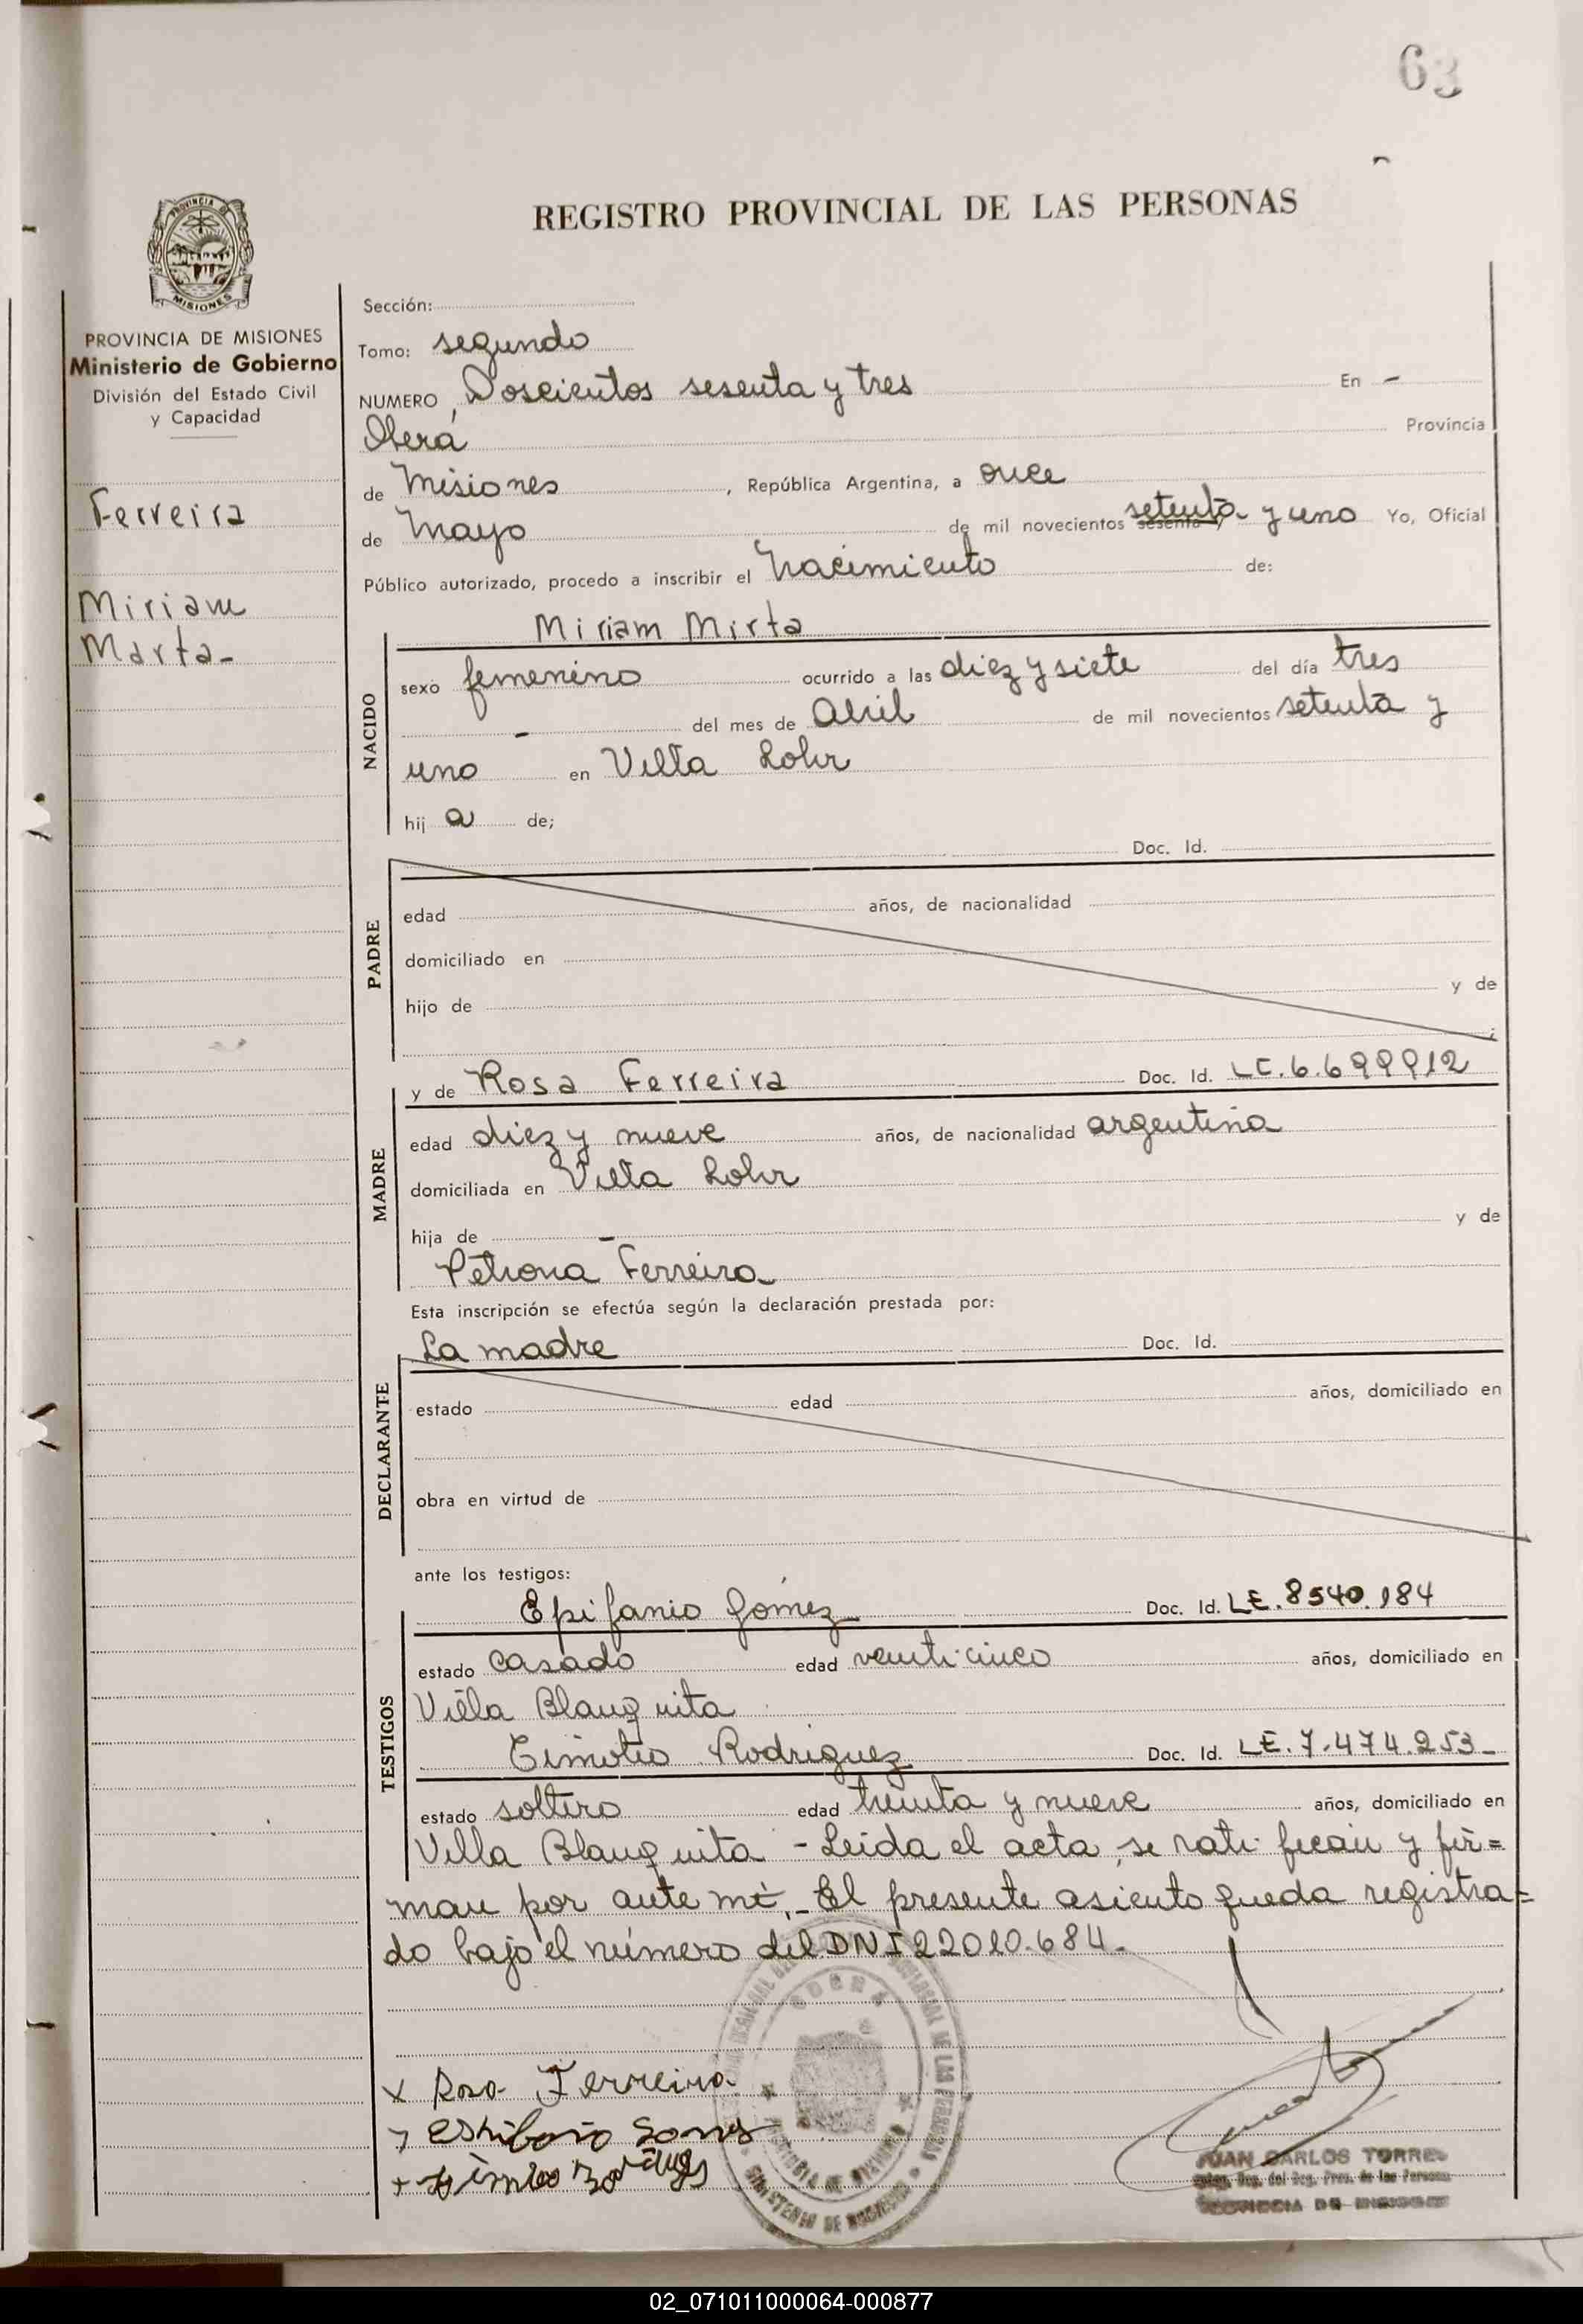 63
REGISTRO PROVINCIAL DE LAS PERSONAS
PROVINCIA DE
MISIONES
PROVINCIA DE MISIONES
Ministerio de Gobierno
División del Estado Civil
y Capacidad
Ferreira
Miriam
Marta-
Sección:
Tomo: segundo
NUMERO, Doscientos sesenta y tres En -
Oberá Provincia
de Misiones, República Argentina, a once
de Mayo de mil novecientos sesenta y setenta y uno Yo, Oficial
Público autorizado, procedo a inscribir el Nacimiento de:
Miriam Mirta
NACIDO
sexo femenino ocurrido a las diez y siete del día tres
- del mes de Abril de mil novecientos setenta y
uno en Villa Lohr
hij a de;
PADRE
Doc. Id.
edad años, de nacionalidad
domiciliado en
hijo de y de
;
MADRE
y de Rosa Ferreira Doc. Id. LC. 6.699912
edad diez y nueve años, de nacionalidad argentina
domiciliada en Villa Lohr
hija de - y de
Petrona Ferreira
Esta inscripción se efectúa según la declaración prestada por:
La madre Doc. Id.
DECLARANTE
estado edad años, domiciliado en
obra en virtud de
ante los testigos:
TESTIGOS
Epifanio Gómez Doc. Id. LE. 8540.184
estado casado edad veinticinco años, domiciliado en
Villa Blanquita
Timoteo Rodriguez Doc. Id. LE. 7.474.253-
estado soltero edad treinta y nueve años, domiciliado en
Villa Blanquita - Leida el acta, se ratifican y fir=
man por ante mí,- El presente asiento queda registra=
do bajo el número del DNI 22010.684.-
x Rosa Ferreira
JUAN CARLOS TORRES
02_071011000064-000877